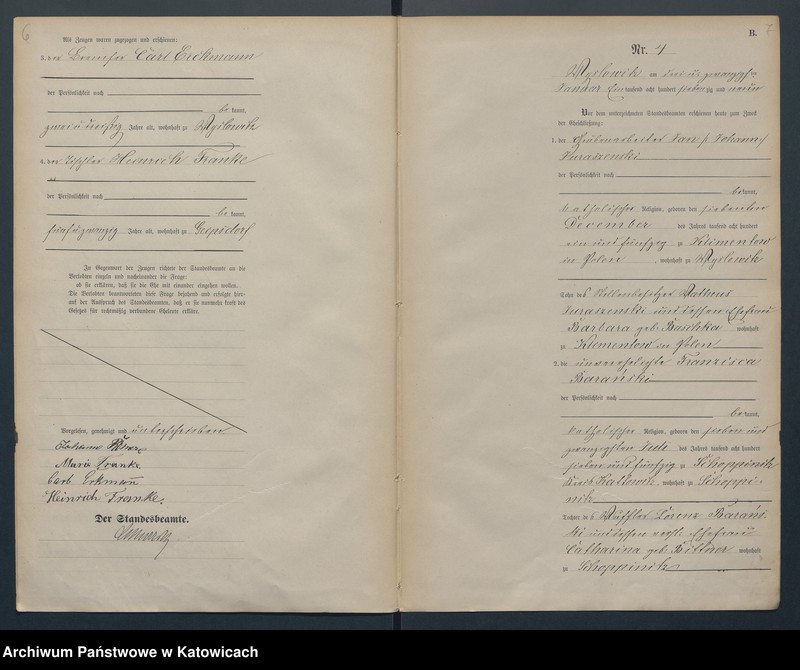 6
Als Zeugen waren zugezogen und erschienen:
3. der Brenner Carl Erckmann
der Persönlichkeit nach
be kannt,
zwei und dreißig Jahre alt, wohnhaft zu Myslowitz
4. der Tischler Heinrich Franke
der Persönlichkeit nach
be kannt,
fünf u zwanzig Jahre alt, wohnhaft zu
In Gegenwart der Zeugen richtete der Standesbeamte an die
Verlobten einzeln und nacheinander die Frage:
ob sie erklären, daß sie die Ehe mit einander eingehen wollen.
Die Verlobten beantworteten diese Frage bejahend und erfolgte hier-
auf der Ausspruch des Standesbeamten, daß er sie nunmehr kraft des
Gesetzes für rechtmäßig verbundene Eheleute erkläre.
Vorgelesen, genehmigt und unterschrieben
Johann
Maria Franke
Carl Erkmann
Heinrich Franke.
Der Standesbeamte.
B.
7
Nr. 4
Myslowitz am drei u. zwanzigsten
Januar Ein tausend acht hundert siebenzig und neun
Vor dem unterzeichneten Standesbeamten erschienen heute zum Zweck
der Eheschließung:
1. der Grubenarbeiter Jan (Johann)
Juraszenski
der Persönlichkeit nach
be kannt,
katholischer Religion, geboren den siebenten
December des Jahres tausend acht hundert
ein und fünfzig zu Klimentow
in Polen, wohnhaft zu Myslowitz
Sohn des Stellenbesitzer Mathus
Juraszenski und dessen Ehefrau
Barbara geb. wohnhaft
zu Klimentow in Polen
2. die unverehelichte Franzisca
Barański
der Persönlichkeit nach
be kannt,
katholischer Religion, geboren den sieben und
zwanzigsten Juli des Jahres tausend acht hundert
sieben und fünfzig zu Schoppinitz
Kreis Kattowitz, wohnhaft zu Schoppi-
nitz
Tochter des Häusler Lorenz Barańs-
ki und dessen verst. Ehefrau
Catharina geb. Bittner wohnhaft
zu Schoppinitz
Archiwum Państwowe w Katowicach